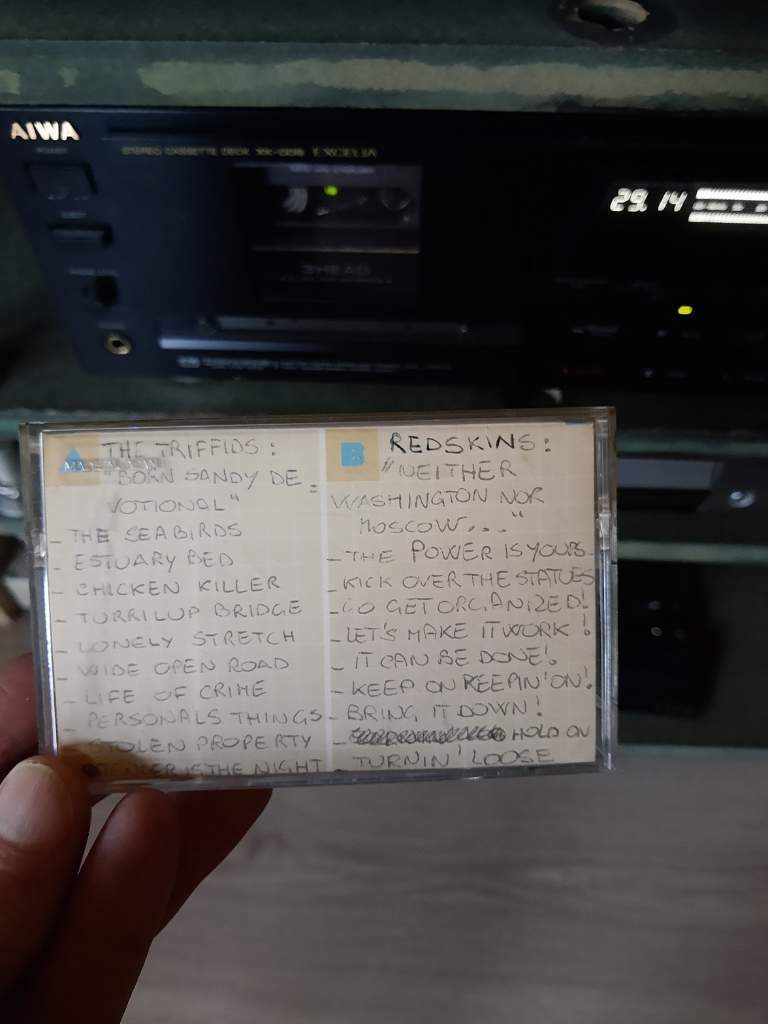 AIWA
STEREO CASSETTE DECK XK-009 EXCELIA
29.14
3 HEAD
A THE TRIFFIDS:
"BORN SANDY DE=
VOTIONAL"
- THE SEABIRDS
- ESTUARY BED
- CHICKEN KILLER
- TURRILUP BRIDGE
- LONELY STRETCH
- WIDE OPEN ROAD
- LIFE OF CRIME
- PERSONALS THINGS
- STOLEN PROPERTY
- TENDER IS THE NIGHT
B REDSKINS:
"NEITHER
WASHINGTON NOR
MOSCOW..."
- THE POWER IS YOURS
- KICK OVER THE STATUES
- GO GET ORGANIZED!
- LET'S MAKE IT WORK!
- IT CAN BE DONE!
- KEEP ON KEEPIN' ON!
- BRING IT DOWN!
- HOLD ON
- TURNIN' LOOSE